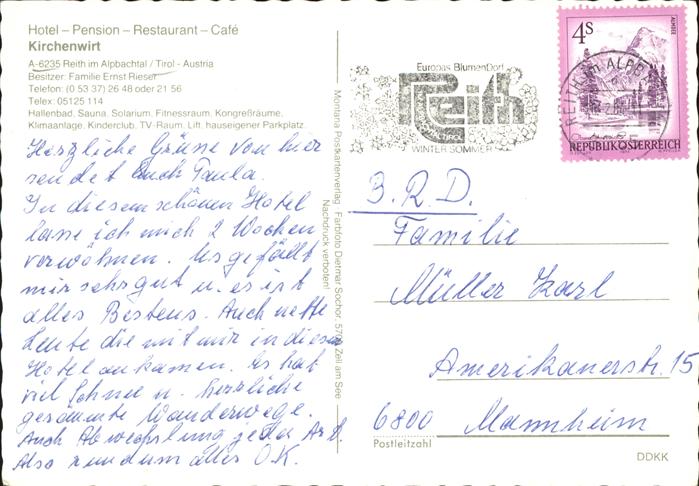 Hotel – Pension – Restaurant – Café
Kirchenwirt
A-6235 Reith im Alpbachtal / Tirol - Austria
Besitzer: Familie Ernst Rieser
Telefon: (0 53 37) 26 48 oder 21 56
Telex: 05125 114
Hallenbad, Sauna, Solarium, Fitnessraum, Kongreßräume,
Klimaanlage, Kinderclub, TV-Raum, Lift, hauseigener Parkplatz.
Herzliche Grüsse von hier
sendet Euch Paula.
In diesem schönen Hotel
lasse ich mich 2 Wochen
verwöhnen. Es gefällt
mir sehr gut u. es ist
alles Bestens. Auch nette
Leute die mit mir in diesem
Hotel ankamen. Es hat
viel Schnee u. herrliche
geräumte Wanderwege.
Auch Abwechslung jeder Art.
Also rundum alles O.K.
Montana Postkartenverlag Farbfoto Dietmar Sochor, 5700 Zell am See
Nachdruck verboten!
Europas Blumendorf
Reith
WINTER SOMMER
REITH im ALPB
4S
ALMSEE
REPUBLIK ÖSTERREICH
B.R.D.
Familie
Müller Karl
Amerikanerstr. 15
6800 Mannheim
Postleitzahl
DDKK